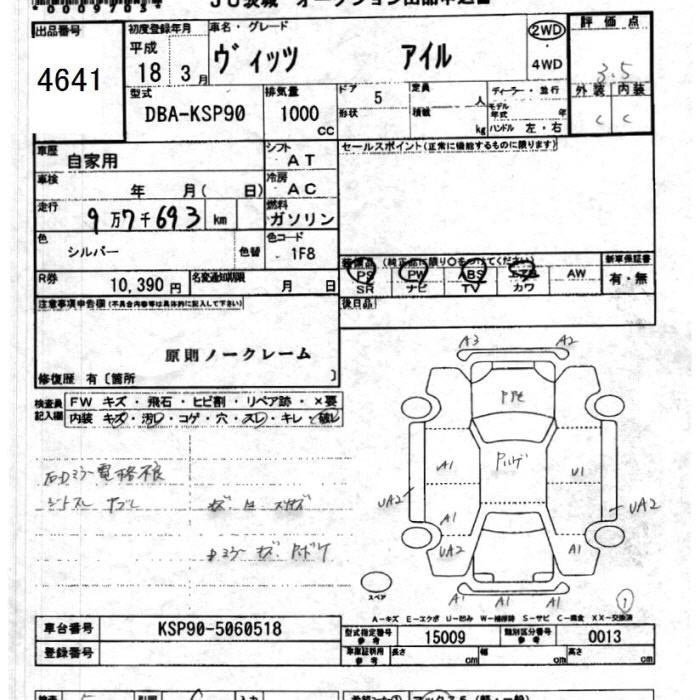 出品番号
4641
初度登録年月
平成
18 3月
車名・グレード
ヴィッツ アイル
2WD
・4WD
評価点
3.5
外装 内装
C C
型式
DBA-KSP90
排気量
1000
cc
ドア 5
形状
定員 人
積載 kg
ディーラー・並行
モデル年式 年
ハンドル 左・右
車歴
自家用
シフト
AT
車検
年 月( 日)
冷房
AC
走行
9万7千693 km
燃料
ガソリン
色
シルバー
色替
色コード
1F8
R券
10,390円
名変通知期限
月 日
セールスポイント(正常に機能するものに限ります)
装備品 (純正品に限り○をつけてください)
PS PW ABS エアB AW
SR ナビ TV カワ
新車保証書
有・無
後日品
注意事項申告欄(不具合内容等は具体的に記入して下さい)
原則ノークレーム
修復歴 有〔箇所 〕
検査員記入欄
FW キズ・飛石・ヒビ割・リペア跡・×要
内装 キズ・汚レ・コゲ・穴・スレ・キレ・破レ
A3 A2
A1
U1
UA2
UA2
A1
UA2
A1
A1 A1 A1
スペア
1
A-キズ E-エクボ U-凹み W-補修跡 S-サビ C-腐食 XX-交換済
車台番号
KSP90-5060518
登録番号
型式指定番号 参考
15009
類別区分番号 参考
0013
車庫証明用 参考
長さ cm
幅 cm
高さ cm